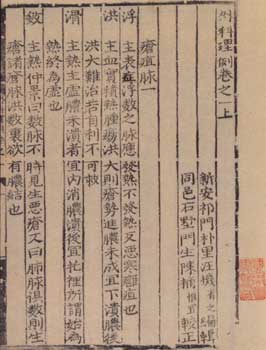 外科理例卷之一上
新安祁門朴里汪機省之編輯
同邑石墅門生陳桷惟宜較正
瘡疽脉一
浮 主表症浮數之脉應發熱不發熱反惡寒癰疽也
洪 主血實積熱腫瘍洪大則瘡勢進膿未成宜下潰膿後
洪大難治若自利不可救
滑 主熱主虛膿未潰者宜內消膿潰後宜托裡所謂始為
熱終為虛也
數 主熱仲景曰數脉不時見生惡瘡又曰肺脉俱數則生
瘡諸瘡脉洪數裏欲有膿結也